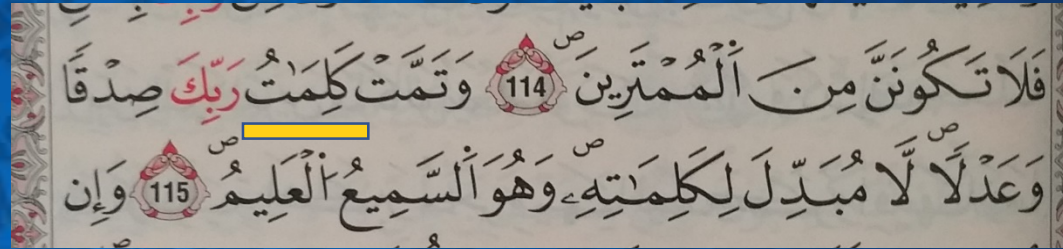 فَلَا تَكُونَنَّ مِنَ اَ۬لْمُمْتَرِينَۖ 114 وَتَمَّتْ كَلِمَٰتُ رَبِّكَ صِدْقاٗ
وَعَدْلاٗۖ لَّا مُبَدِّلَ لِكَلِمَٰتِهِۦۖ وَهُوَ اَ۬لسَّمِيعُ اُ۬لْعَلِيمُۖ 115 وَإِن